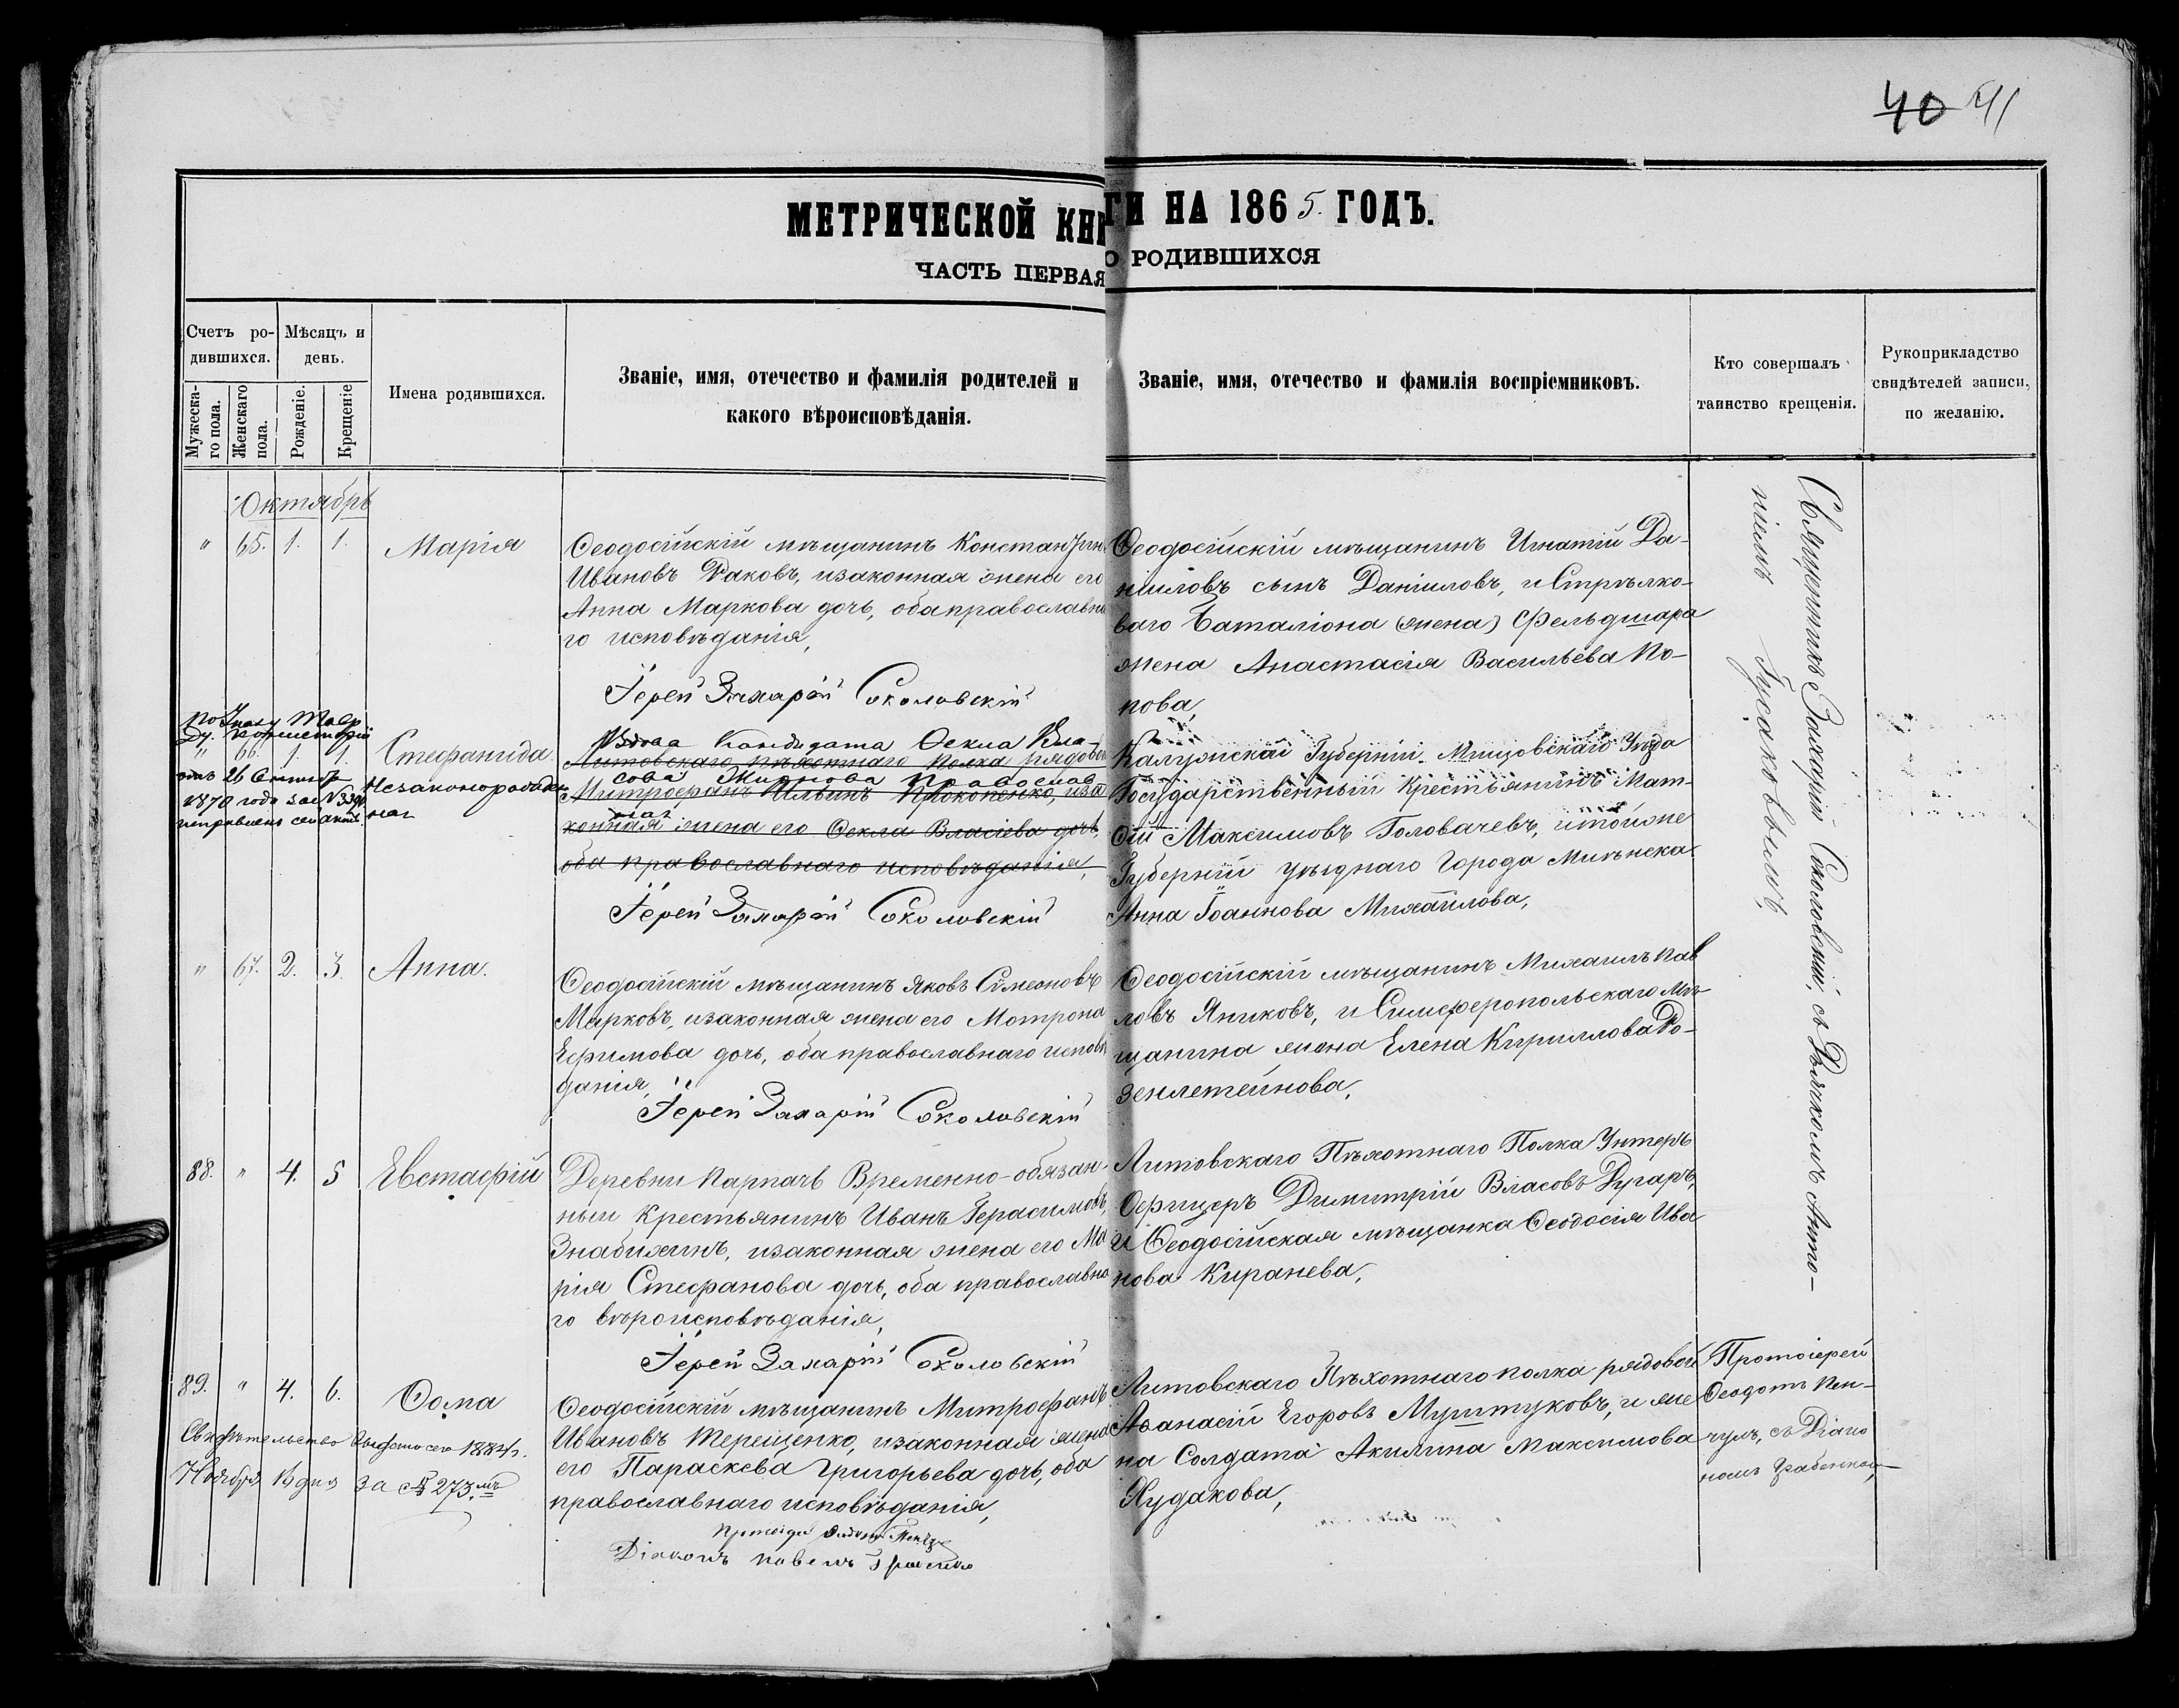 40 41
МЕТРИЧЕСКОЙ КНИГИ НА 1865. ГОДЪ.
ЧАСТЬ ПЕРВАЯ О РОДИВШИХСЯ
Счетъ ро-
дившихся.
Мѣсяцъ и
день.
Мужеска-
го пола.
Женскаго
пола.
Рожденіе.
Крещеніе
Имена родившихся.
Званіе, имя, отечество и фамилія родителей и
какого вѣроисповѣданія.
Званіе, имя, отечество и фамилія воспріемниковъ.
Кто совершалъ
таинство крещенія.
Рукоприкладство
свидѣтелей записи,
по желанію.
Октябрь
" 65. 1. 1. Марія
Ѳеодосійскій мѣщанинъ Константинъ
Ивановъ Раковъ, и законная жена его
Анна Маркова дочь, оба православна
го исповѣданія,
Іерей Захарій Соколовскій
Ѳеодосійскій мѣщанинъ Игнатій Да-
ніиловъ сынъ Даніиловъ, и Стрѣлко-
ваго Баталіона (жена) Фельдшара
жена Анастасія Васильева По-
пова,
Священникъ Захарій Соколовскій, съ Дьячкомъ Анто-
ніемъ Гусаковымъ
По Указу Тавр
Ду. Консисторіи
" 66. 1. 1. Стефанида
отъ 26 Октября
1870 года за № исправленъ сей актъ
Незаконорожден
ная
Вдова Кандидата Ѳекла Вла-
Литовскаго пѣхотнаго Полка рядовой
сова Жирнова Православ
Митрофанъ Ильинъ Прокопенко, и за
ная
конная жена его Ѳекла Власіева дочь,
оба православнаго исповѣданія,
Іерей Захарій Соколовскій
Калужской Губерніи Мещовскаго Уѣзда
Государственный Крестьянинъ Мат-
ѳій Максимовъ Головачевъ, и той же
Губерніи уѣзднаго Города
Анна Іоаннова Михаилова,
" 67. 2. 3. Анна.
Ѳеодосійскій мѣщанинъ Яковъ Симеоновъ
Марковъ, и законная жена его Мотрона
Ефимова дочь, оба православнаго исповѣ
данія,
Іерей Захарій Соколовскій
Ѳеодосійскій мѣщанинъ Михаилъ Пав
ловъ Яниковъ, и Симферопольскаго мѣ-
щанина жена Елена Кириллова Ро-
зенлетейнова,
88. " 4. 5 Евстафій
Деревни Парпачъ Временно-обязан-
ный Крестьянинъ Иванъ Герасимовъ,
Знабихинъ, и законная жена его Ма
рія Стефанова дочь, оба православна
го вѣроисповѣданія,
Іерей Захарій Соколовскій
Литовскаго Пѣхотнаго Полка Унтеръ
Офицеръ Димитрій Власовъ Дугаръ,
и Ѳеодосійская мѣщанка Ѳеодосія Ива
нова Киранева,
89. " 4. 6. Ѳома
Свидѣтельство выдано сего 1884 г.
Ноября дня за № 273.мъ
Ѳеодосійскій мѣщанинъ Митрофанъ
Ивановъ Терещенко, и законная жена
его Параскева Григорьева дочь, оба
православнаго исповѣданія,
Діаконъ Павелъ
Литовскаго Пѣхотнаго полка рядовой
Аѳанасій Егоровъ Муштуковъ, и же
на Солдата Акилина Максимова
Худакова,
Протоіерей
Ѳеодотъ Пен-
чулъ, съ Діако
номъ Грабенкою,